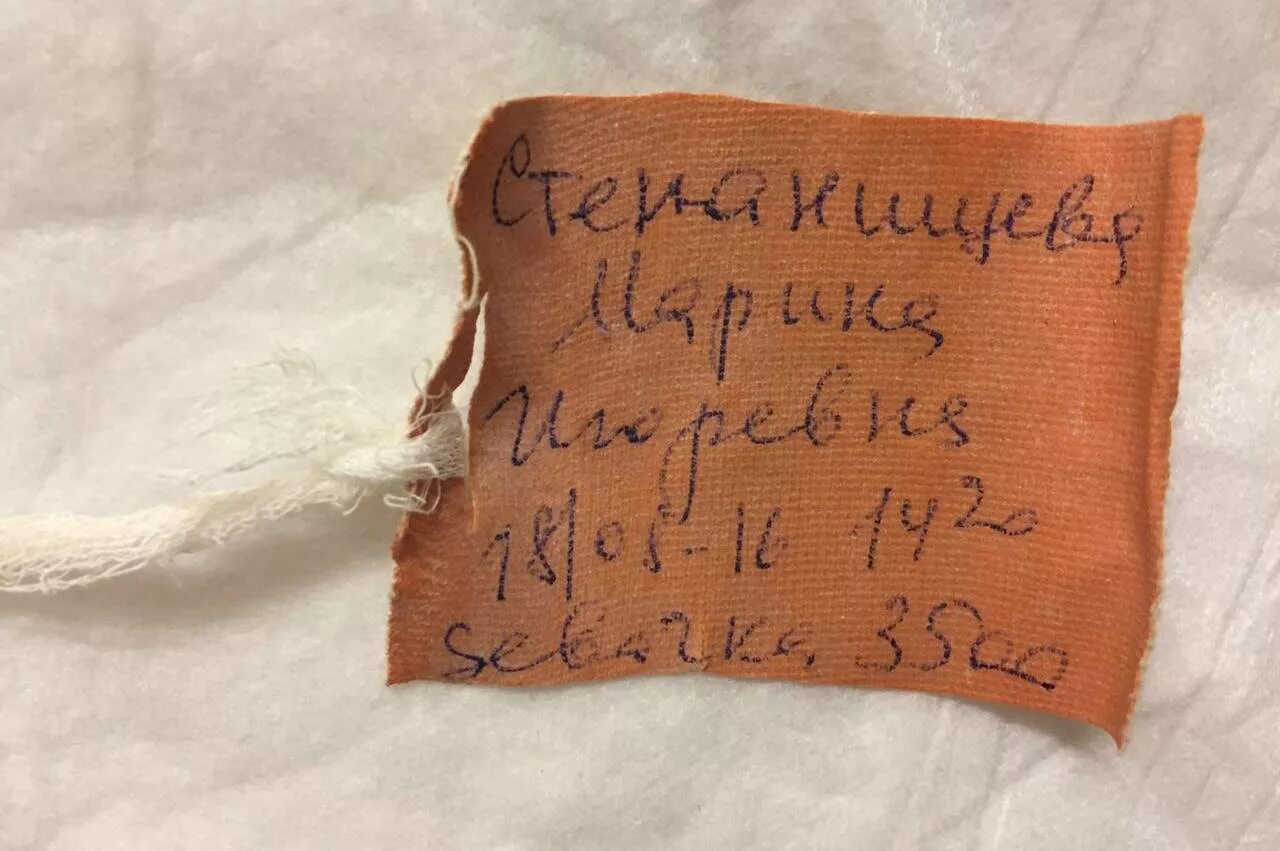 Степанищева
Марина
Игоревна
18/05-16 14²⁰
девочка 3500